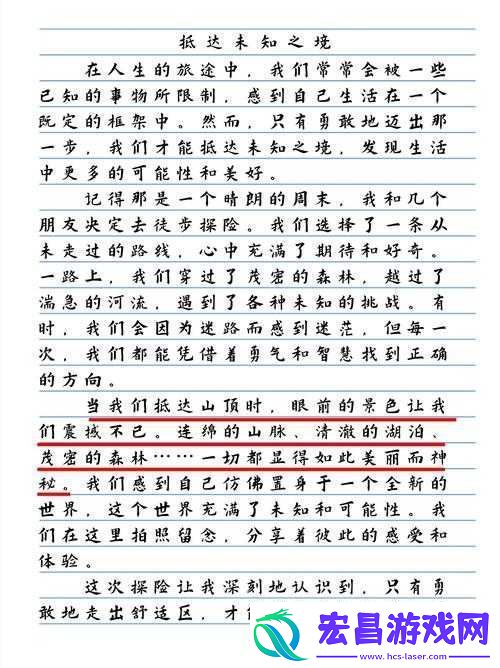 抵达未知之境
在人生的旅途中，我们常常会被一些
已知的事物所限制，感到自己生活在一个
既定的框架中。然而，只有勇敢地迈出那
一步，我们才能抵达未知之境，发现生活
中更多的可能性和美好。
记得那是一个晴朗的周末，我和几个
朋友决定去徒步探险。我们选择了一条从
未走过的路线，心中充满了期待和好奇。
一路上，我们穿过了茂密的森林，越过了
湍急的河流，遇到了各种未知的挑战。有
时，我们会因为迷路而感到迷茫，但每一
次，我们都能凭借着勇气和智慧找到正确
的方向。
当我们抵达山顶时，眼前的景色让我
们震撼不已。连绵的山脉、清澈的湖泊、
茂密的森林……一切都显得如此美丽而神
秘。我们感到自己仿佛置身于一个全新的
世界，这个世界充满了未知和可能性。我
们在这里拍照留念，分享着彼此的感受和
体验。
这次探险让我深刻地认识到，只有勇
敢地走出舒适区，才
宏昌游戏网
www.hcs-laser.com